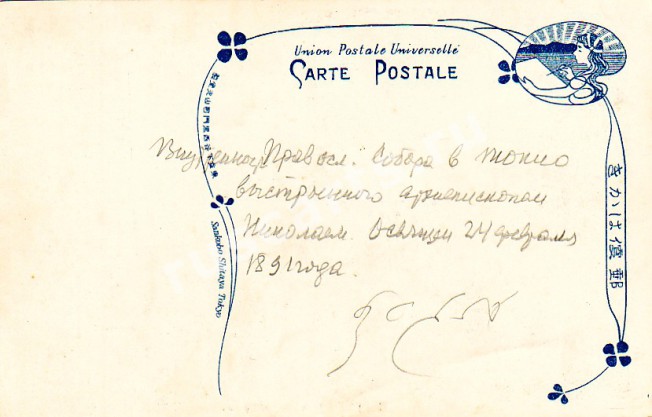 Union Postale Universelle
CARTE POSTALE
Внутренность Правосл. Собора в Токио
выстроенного архиепископом
Николаем. Освящен 24 февраля
1891 года.
Sankubo Shitaya Tokyo
きかは便郵